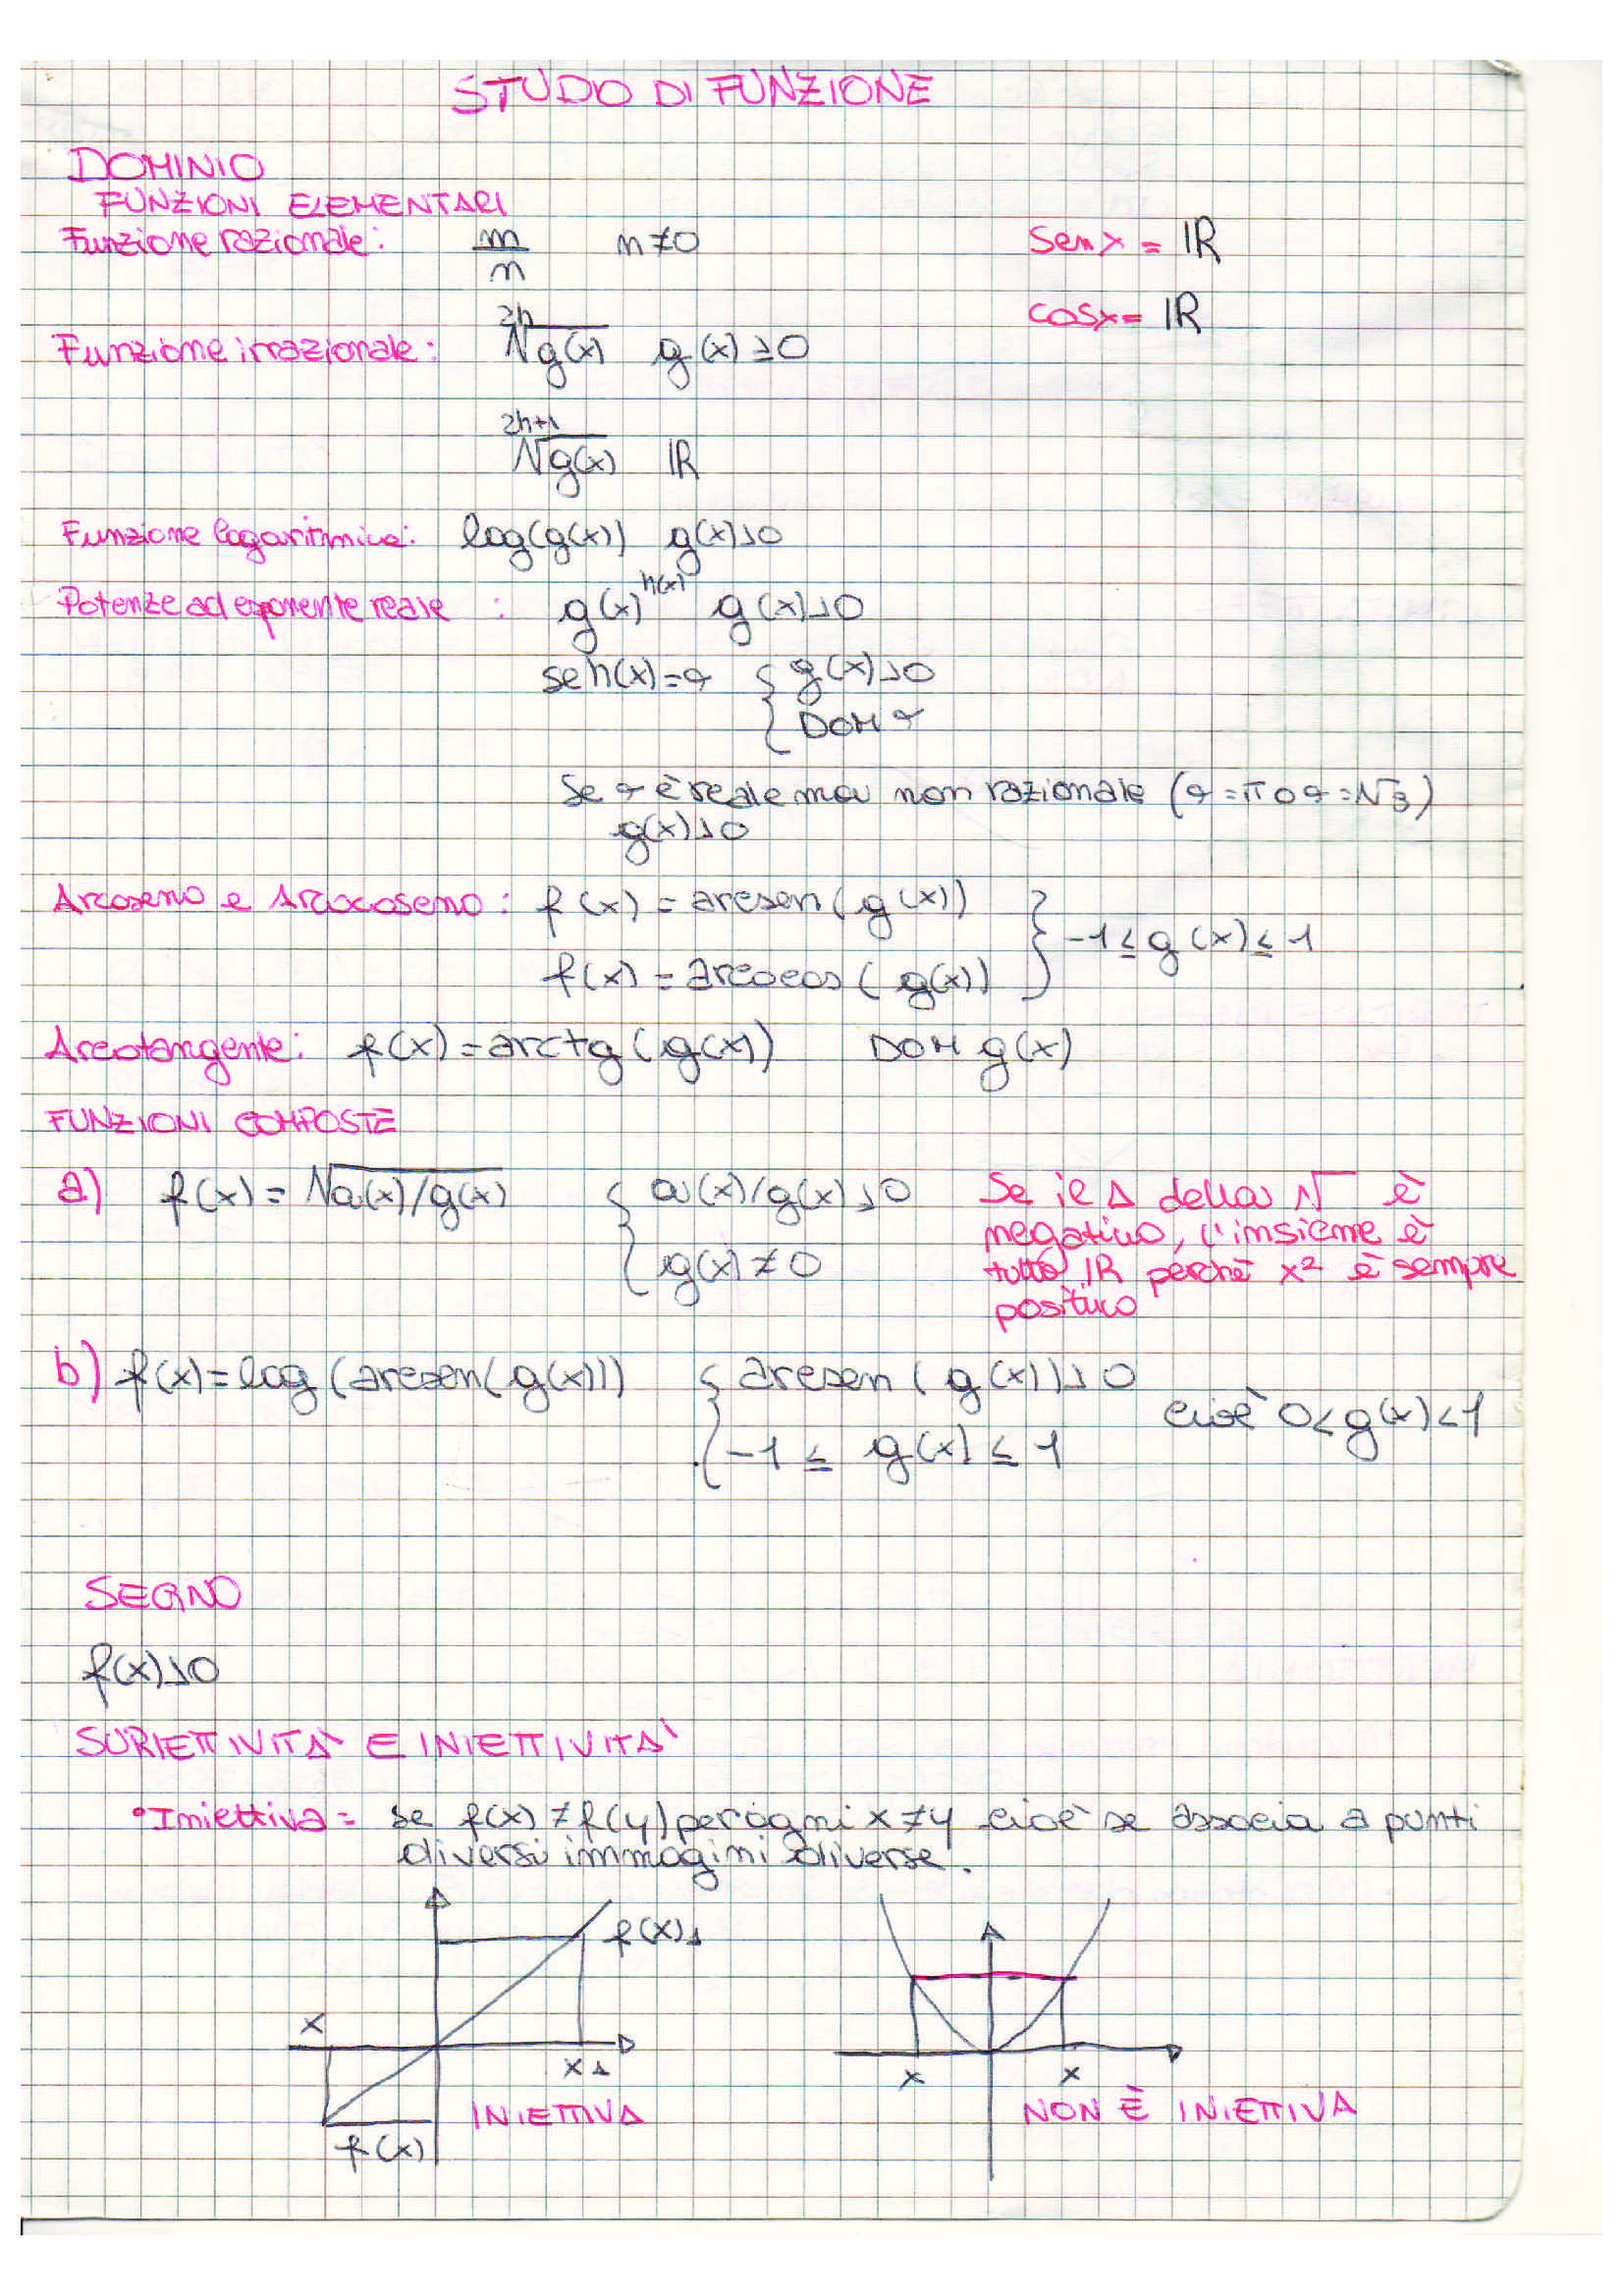 STUDO DI FUNZIONE
DOMINIO
FUNZIONI ELEMENTARI
Funzione razionale: m/n n≠0 senx = ℝ
cosx = ℝ
Funzione irrazionale: ²ʰ√g(x) g(x)≥0
²ʰ⁺¹√g(x) ℝ
Funzione logaritmica: log(g(x)) g(x)>0
Potenze ad esponente reale : g(x)^h(x) g(x)>0
se h(x)=α { g(x)>0
DOM α
Se α è reale ma non razionale (α=π o α=√3)
g(x)>0
Arcoseno e Arcocoseno: f(x) = arcsen(g(x))
f(x) = arcocos(g(x)) } -1≤g(x)≤1
Arcotangente: f(x)=arctg(g(x)) DOM g(x)
FUNZIONI COMPOSTE
a) f(x)=√a(x)/g(x) { a(x)/g(x)>0
g(x)≠0
Se il Δ della √ è
negativo, l'insieme è
tutto ℝ perchè x² è sempre
positivo
b) f(x)=log(arcsen(g(x))) { arcsen(g(x))>0
-1 ≤ g(x) ≤ 1 cioè 0<g(x)<1
SEGNO
f(x)>0
SURIETTIVITÀ E INIETTIVITÀ
•Iniettiva= se f(x)≠f(y) per ogni x≠y cioè se associa a punti
diversi immagini diverse.
f(x)1
x
x1
x x
INIETTIVA
NON È INIETTIVA
f(x)